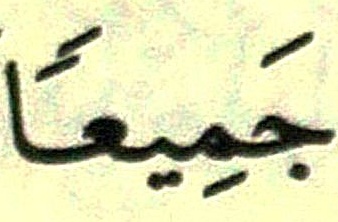 جَمِيعًا